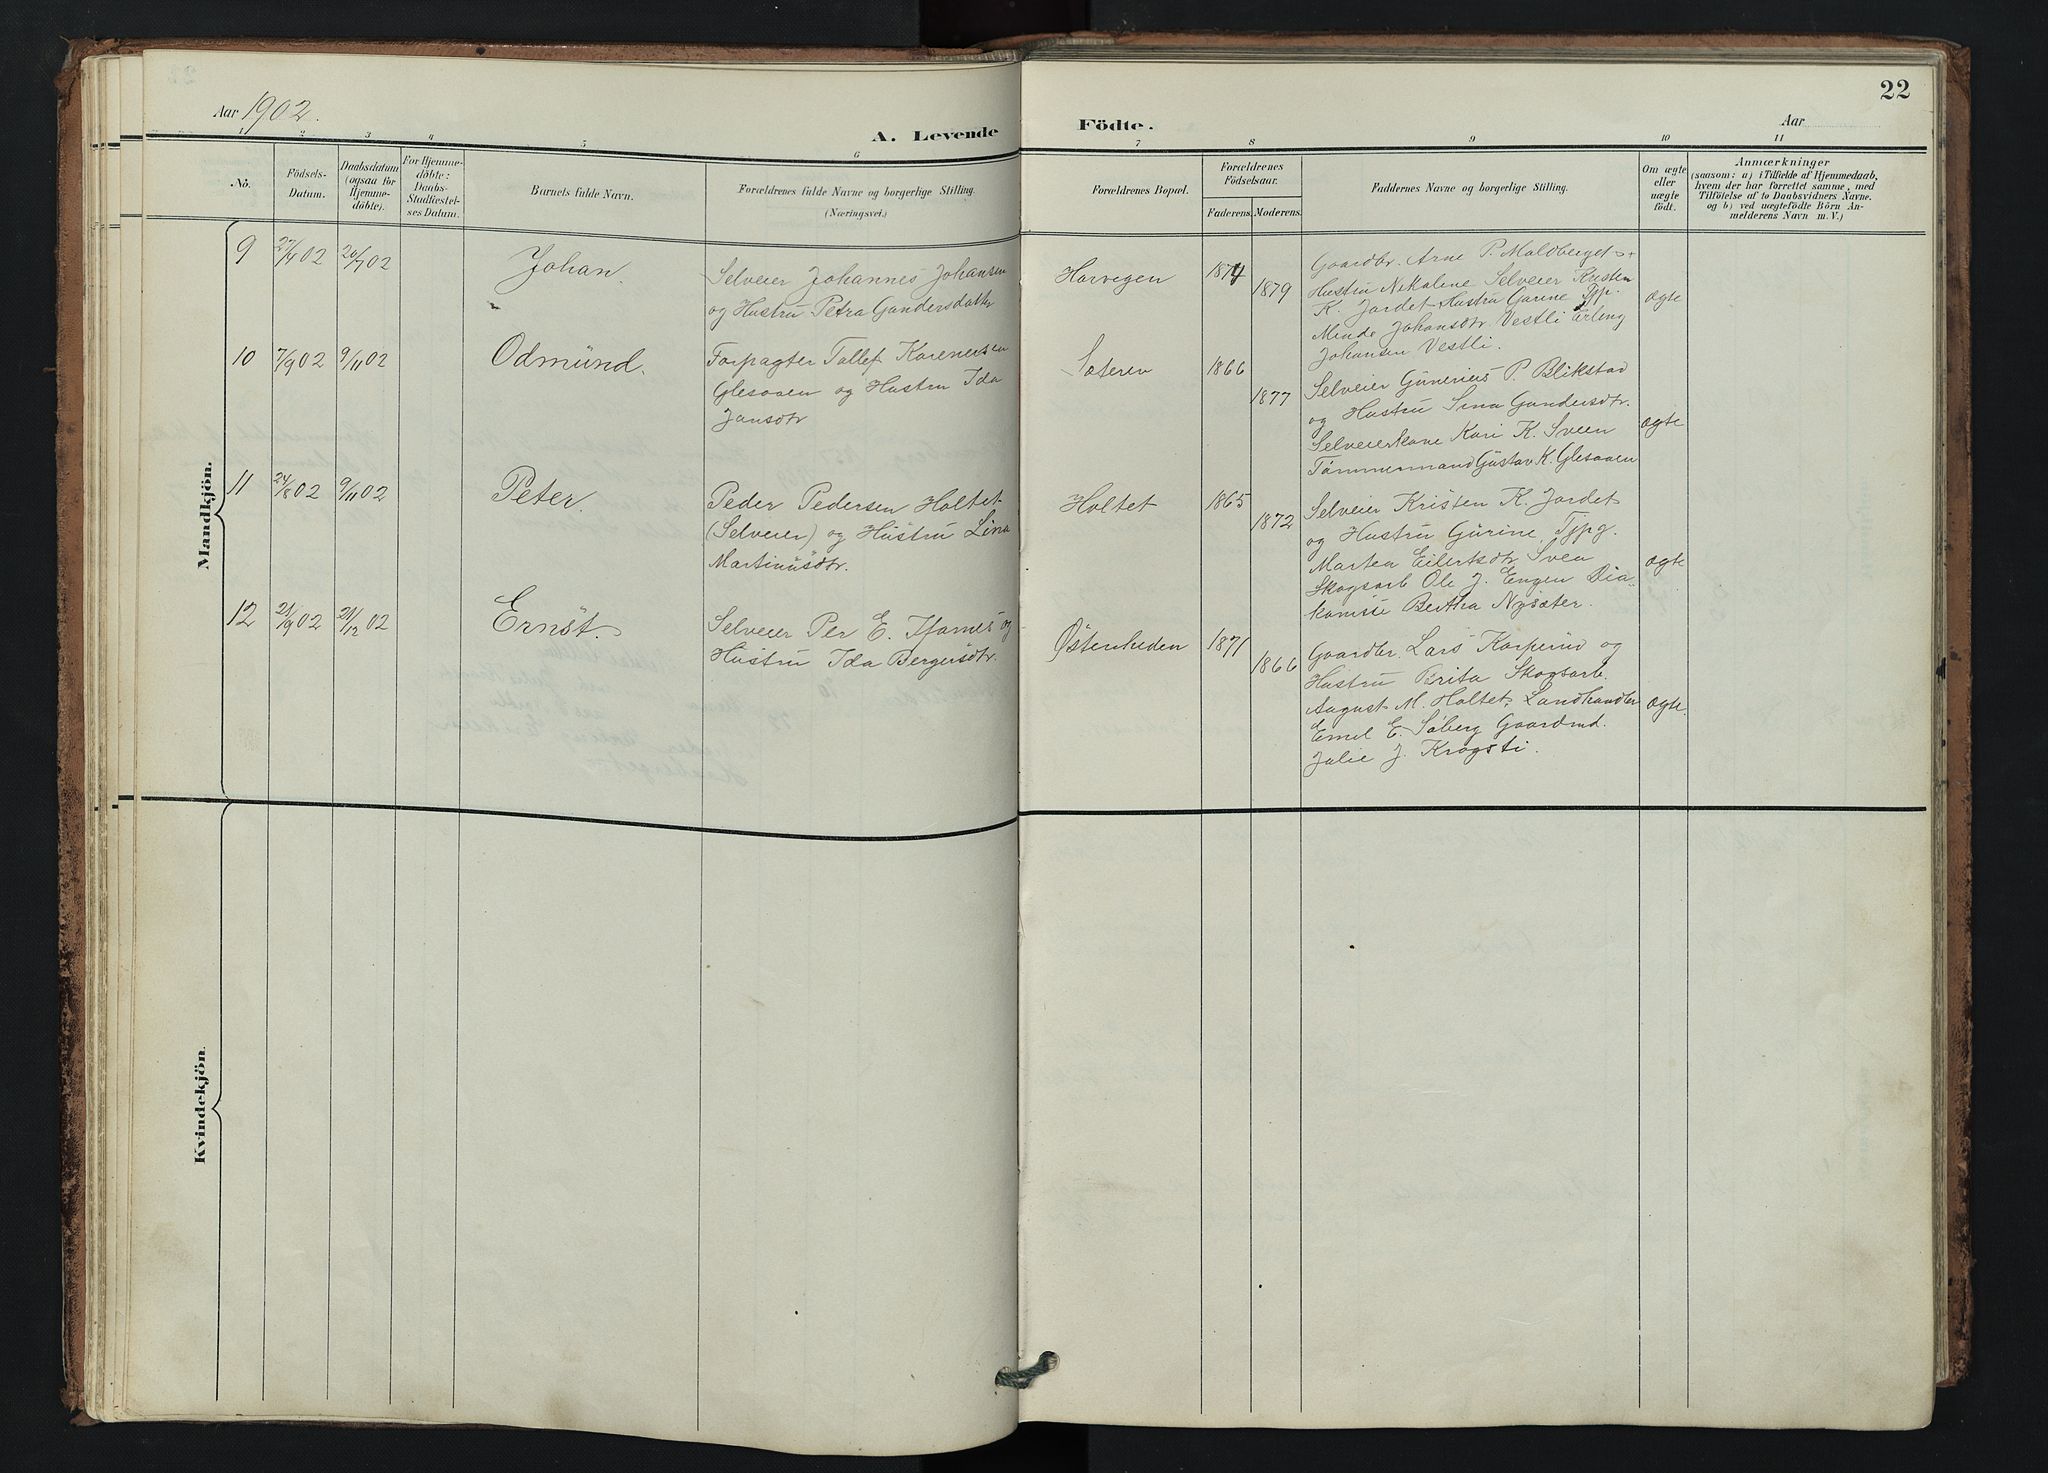 22
Aar 1902.
A. Levende Födte.
Aar
1 2 3 4 5 6 7 8 9 10 11
No.
Födsels-
Datum.
Daabsdatum
(ogsaa for
Hjemme-
döbte).
For Hjemme-
döbte:
Daabs-
Stadfæstel-
ses Datum.
Barnets fulde Navn.
Forældrenes fulde Navne og borgerlige Stilling.
(Næringsvei.)
Forældrenes Bopæl.
Forældrenes
Födselsaar.
Faderens. Moderens.
Faddernes Navne og borgerlige Stilling.
Om ægte
eller
uægte
födt.
Anmærkninger
(saasom: a) i Tilfælde af Hjemmedaab,
hvem der har forrettet samme, med
Tilföielse af to Daabsvidners Navne.
og b) ved uægtefödte Börn An-
melderens Navn m. V.)
Mandkjön.
9 27/4 02 20/7 02 Johan.
Selveier Johannes Johansen
og Hustru Petra Gundersdatter
Horvegen 1874 1879
Gaardbr. Arne P. Moldberget +
Hustru Nikoline Selveier Kristen
K. Jordet + Hustru Gurine Tjp.
Minde Johansdtr. Vestli Erling
Johansen Vestli.
ægte
10 7/9 02 9/11 02 Odmünd.
Forpagter Tollef Korenersen
Glesaaen og Hustru Ida
Jansdtr
Sæteren 1866 1877
Selveier Günerius P. Blikstad
og Hustru Sina Gundersdtr.
Selveierkone Kari K. Sveen
Tömmermand Gustav K. Glesaaen
ægte
11 24/8 02 9/11 02 Peter.
Peder Pedersen Holtet
(Selveier) og Hustru Lina
Martinüsdtr.
Holtet 1865 1872
Selveier Kristen K. Jordet
og Hustru Gürine, Tjpg.
Martea Eilertsdtr Svea
Skogsarb Ole J. Engen Dia-
konisse Bertha Nysæter.
ægte
12 21/9 02 21/12 02 Ernst.
Selveier Per E. og
Hustru Ida Bergersdtr.
Østenheden 1871 1866
Gaardbr. Lars Korperud og
Hustru Brita Skogsarb.
August M. Holtet, Landhandler
Emil E. Söberg Gaardmd.
Julie J. Krogsti.
ægte.
Kvindekjön.